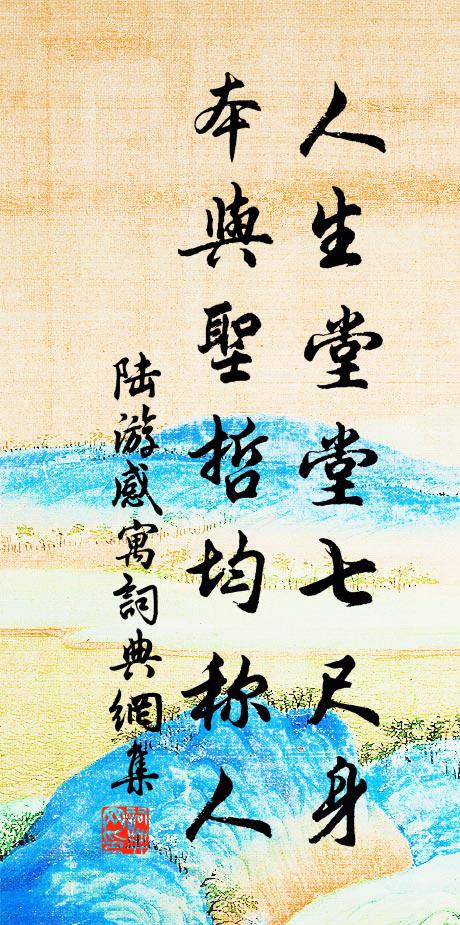 人生堂堂七尺身
本與聖哲均称人
陆游感寓詞典網集